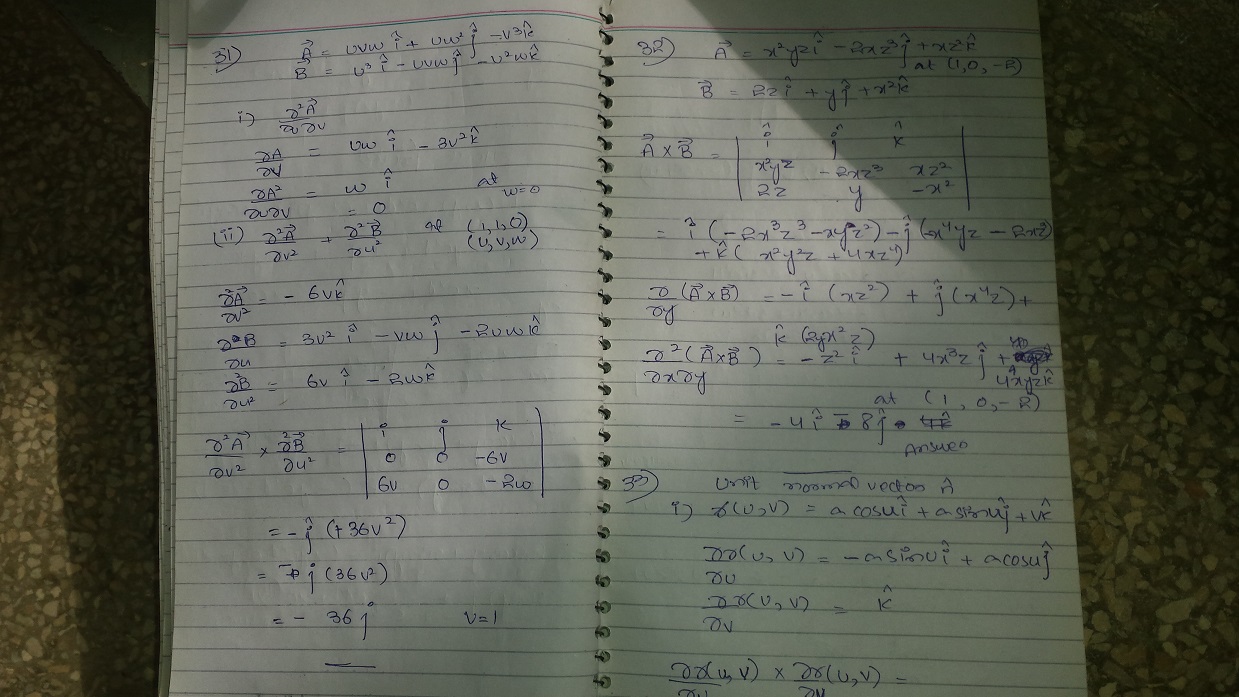 31) A⃗ = uvw î + uw² ĵ - v³ k̂
B⃗ = u³ î - uvw ĵ - u²w k̂
i) ∂²A⃗ / ∂u∂v
∂A / ∂v = uw î - 3v² k̂
∂A² / ∂u∂v = w î at w=0
= 0
(ii) ∂²A⃗ / ∂v² + ∂²B⃗ / ∂u² at (1,1,0)
(u,v,w)
∂²A⃗ / ∂v² = - 6v k̂
∂B / ∂u = 3u² î - vw ĵ - 2uw k̂
∂²B / ∂u² = 6u î - 2w k̂
∂²A⃗ / ∂v² × ∂²B⃗ / ∂u² = | i j k
0 0 -6v
6v 0 -2w |
= - ĵ (+36v²)
= - j (36v²)
= - 36 j v=1
32) A⃗ = x²yz î - 2xz³ ĵ + xz² k̂
at (1,0,-2)
B⃗ = 2z î + y ĵ + x² k̂
A⃗ × B⃗ = | î ĵ k̂
x²yz - 2xz³ xz²
2z y -x² |
= î (-2x³z³ - xyz²) - ĵ (-x⁴yz - 2xz³)
+ k̂ ( x²y²z + 4xz⁴)
∂ / ∂y (A⃗×B⃗) = - î (xz²) + ĵ (x⁴z) +
k̂ (2yx²z)
∂²(A⃗×B⃗) / ∂x∂y = - z² î + 4x³z ĵ + 4xyz k̂
at (1, 0, -2)
= - 4 î - 8 ĵ
Answer
33) Unit normal vector n̂
i) r(u,v) = a cosu î + a sinu ĵ + v k̂
∂r(u,v) / ∂u = - a sinu î + a cosu ĵ
∂r(u,v) / ∂v = k̂
∂r(u,v) / ∂u × ∂r(u,v) / ∂v =